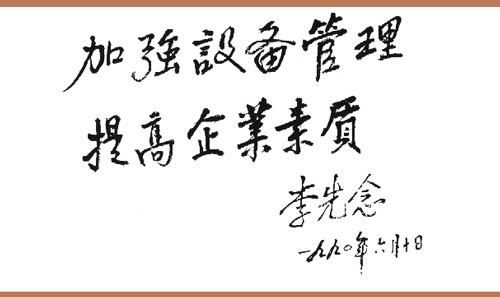 加強設备管理
提高企業素质
李先念
一九九〇年六月十日